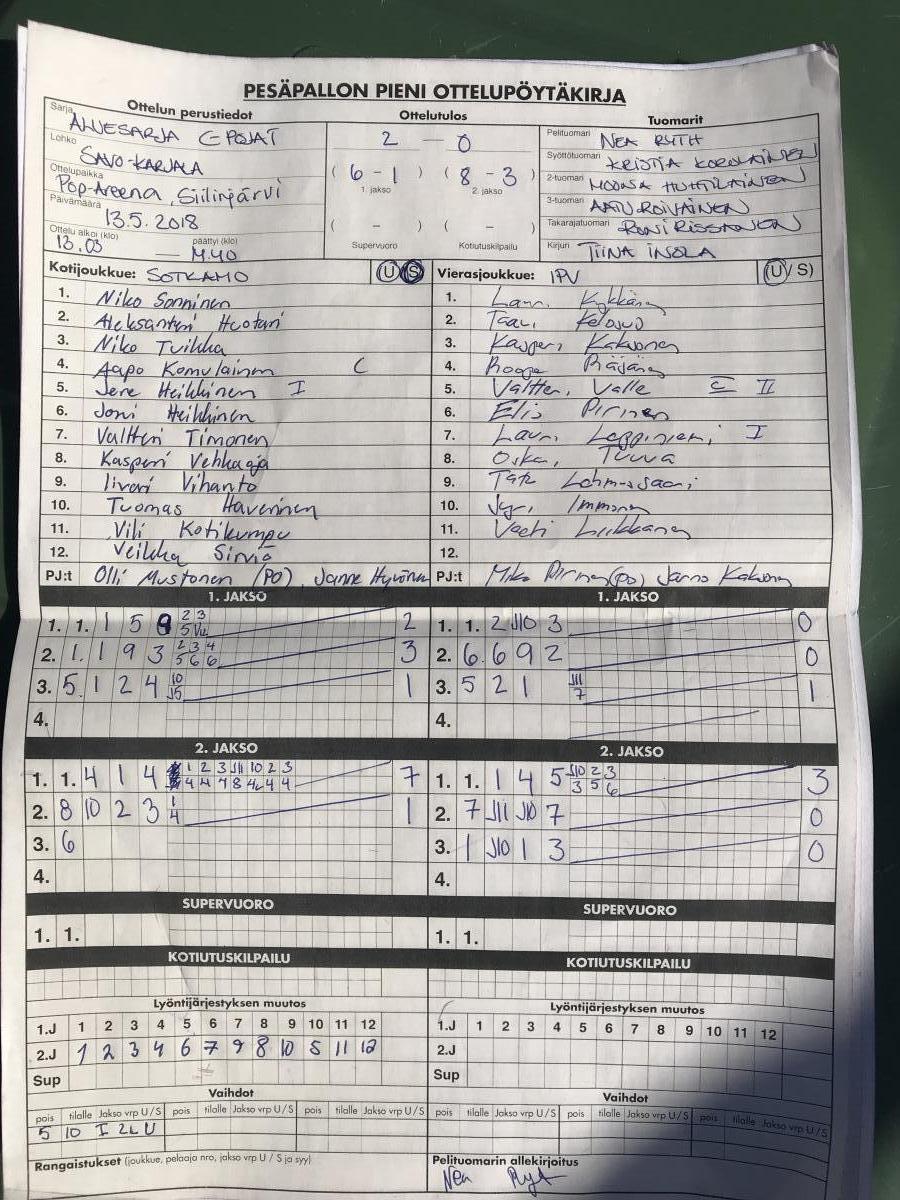 PESÄPALLON PIENI OTTELUPÖYTÄKIRJA
Ottelun perustiedot
Ottelutulos
Tuomarit
Sarja ALUESARJA C-POJAT
Lohko SAVO-KARJALA
Ottelupaikka Pop-Areena, Siilinjärvi
Päivämäärä 13.5.2018
Ottelu alkoi (klo) 13.03 — päättyi (klo) 14.40
2 — 0
( 6 - 1 ) ( 8 - 3 )
1. jakso 2. jakso
( - ) ( - )
Supervuoro Kotiutuskilpailu
Pelituomari NEA RUTH
Syöttötuomari KRISTA
2-tuomari
3-tuomari AATU ROIVAINEN
Takarajatuomari RONI RISSANEN
Kirjuri TIINA INSOLA
Kotijoukkue: SOTKAMO (U/S)
1. Niko Sonninen
2. Aleksanteri Huotari
3. Niko Tuikka
4. Aapo Komulainen C
5. Jere Heikkinen I
6. Joni Heikkinen
7. Valtteri Timonen
8. Kasperi Vehkaoja
9. Iivari Vihanto
10. Tuomas Haverinen
11. Vili Kotikumpu
12. Veikka Sirviö
PJ:t Olli Mustonen (PO), Janne Hyvönen
Vierasjoukkue: IPV (U/S)
1. Lauri Kykkänen
2.
3. Kasperi Kakkonen
4. Roope Räjänen
5. Valtteri Valle C II
6. Elis Pirinen
7. Lauri Leppiniemi I
8. Oska, Tuuva
9.
10. Jyri Immonen
11. Veeti Liikkanen
12.
PJ:t Mika Pirinen (PO) Jarno Kakkonen
1. JAKSO
1. 1. 1 5 9 2 2
2. 1. 1 9 3 2 3 4 3
5 6 6
3. 5. 1 2 4 10 1
4.
1. JAKSO
1. 1. 2 10 3 0
2. 6. 6 9 2 0
3. 5 2 1 11 1
7
4.
2. JAKSO
1. 1. 4 1 4 1 2 3 11 10 2 3 7
4 4 7 8 4 4 4
2. 8 10 2 3 1 1
4
3. 6
4.
2. JAKSO
1. 1. 1 4 5 10 2 3 3
3 5 6
2. 7 11 10 7 0
3. 1 10 1 3 0
4.
SUPERVUORO
1. 1.
SUPERVUORO
1. 1.
KOTIUTUSKILPAILU
KOTIUTUSKILPAILU
Lyöntijärjestyksen muutos
1.J 1 2 3 4 5 6 7 8 9 10 11 12
2.J 1 2 3 4 6 7 9 8 10 5 11 12
Sup
Lyöntijärjestyksen muutos
1.J 1 2 3 4 5 6 7 8 9 10 11 12
2.J
Sup
Vaihdot
pois tilalle Jakso vrp U/S pois tilalle Jakso vrp U/S pois tilalle Jakso vrp U/S
5 10 I 2L U
Vaihdot
pois tilalle Jakso vrp U/S pois tilalle Jakso vrp U/S pois tilalle Jakso vrp U/S
Rangaistukset (joukkue, pelaaja nro, jakso vrp U / S ja syy)
Pelituomarin allekirjoitus
Nea